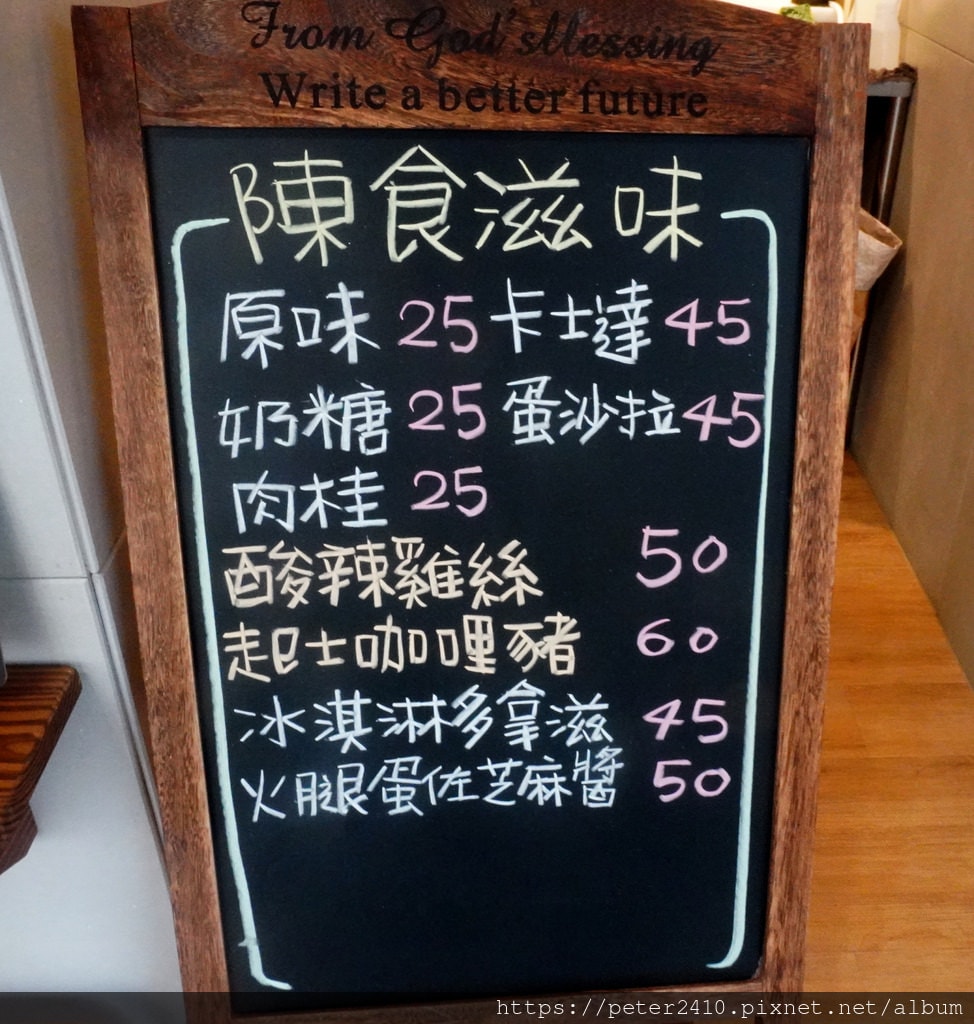 From God'sBlessing
Write a better future
陳食滋味
原味 25 卡士達 45
奶糖 25 蛋沙拉 45
肉桂 25
酸辣雞絲 50
起士咖哩豬 60
冰淇淋多拿滋 45
火腿蛋佐芝麻醬 50
https://peter2410.pixnet.net/album